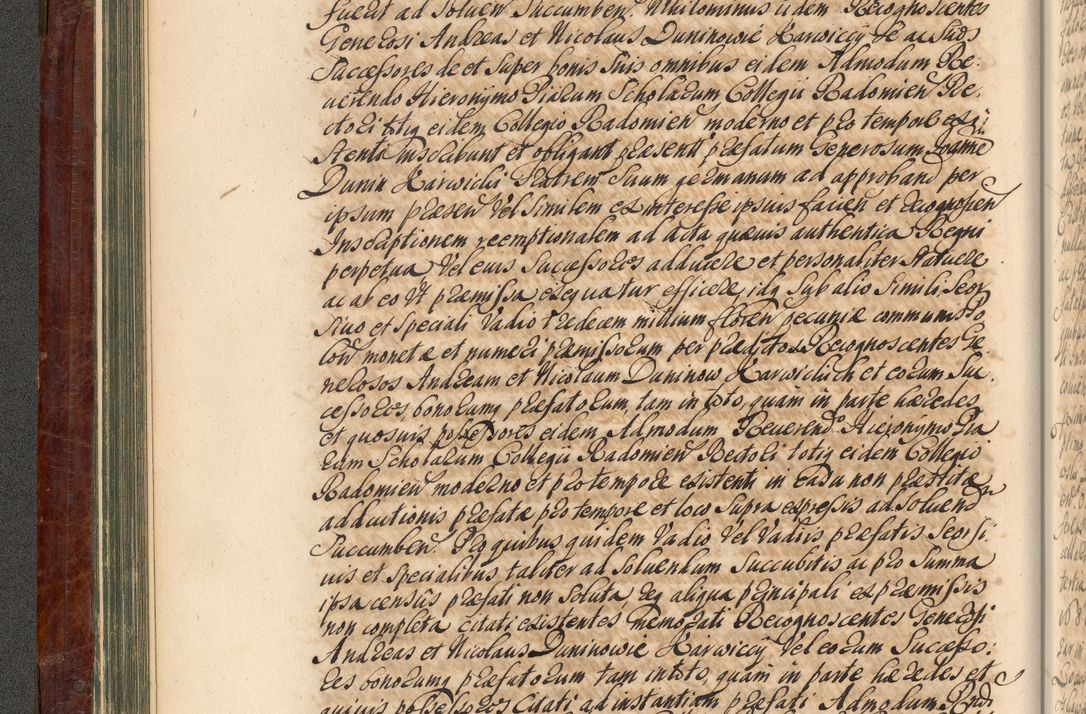 fuerit ad Soluen̄ Succumben̄. Nihilominus iidem Recognoscentes
Generosi Andreas et Nicolaus Duninowie Karwiccy se ac suos
Successores de et super bonis suis omnibus eidem Admodum Re-
uerendo Hieronymo Piarum Scholarum Collegii Radomien̄ Re-
ctori totiq̨ eidem Collegio Radomien̄ moderno et pro tempore exi-
stenti Inscribunt et obligant praesenti praefatum Generosum Joannē
Dunin Karwicki Fratrem Suum germanum ad approband̄ per
ipsum praesen̄ Vel Similem ex interesse ipsius facien̄ et recognoscen̄
Inscriptionem reemptionalem ad Acta quaeuis authentica Regni
perpetua Vel eius Successores adducere et personaliter Statuere
ac ab eo Vt praemissa exequatur efficere, idq̨ Sub alio Simili Seor-
siuo et Speciali Vadio tredecem millium floren̄ pecuniae communis Po
lon̄ monetae et numeri praemissorum per praedictos Recognoscentes Ge-
nerosos Andream et Nicolaum Duninow Karwickich et eorum Suc-
cessores, bonorumq̨ praefatorum, tam in toto, quam in parte haeredes
et quosuis possessores eidem Admodum Reuerend̄o Hieronymo Pia
rum Scholarum Collegii Radomien̄ Rectori totiq̨ eidem Collegio
Radomien̄ moderno et pro tempore existenti in Casu non praestitae
adductionis praefatae pro tempore et loco Supra expressis ad Soluend̄
Succumben̄. Pro quibus quidem Vadio Vel Vadiis praefatis Seorsi-
uis et Specialibus taliter ad Soluendum Succubitis ac pro Summa
ipsa censûs praefati non Soluta req̨ aliqua principali ex praemissis
non completa citati existentes memorati Recognoscentes Generosi
Andreas et Nicolaus Duninowie Karwiccy Vel eorum Successo-
res bonorumq̨ praefatorum tam in toto, quam in parte haeredes et
quiuis possessores Citati ad instantiam praefati Admodum Rndi